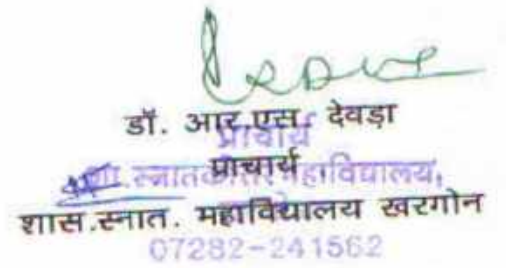 डॉ. आर.एस. देवड़ा
प्राचार्य
प्राचार्य
स्नातकोत्तर महाविद्यालय,
शास.स्नात. महाविद्यालय खरगोन
07282-241562